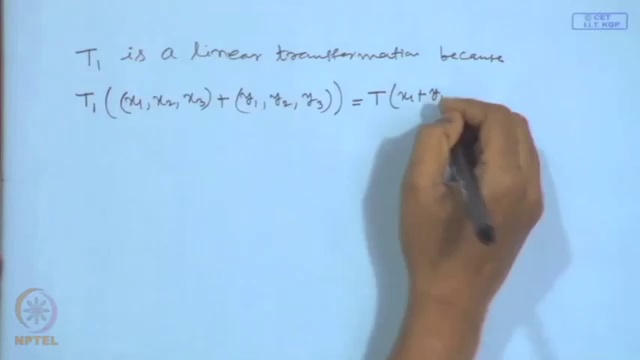 © CET
I.I.T. KGP
T₁ is a linear transformation because
T₁((x₁, x₂, x₃) + (y₁, y₂, y₃)) = T(x₁ + y,
NPTEL